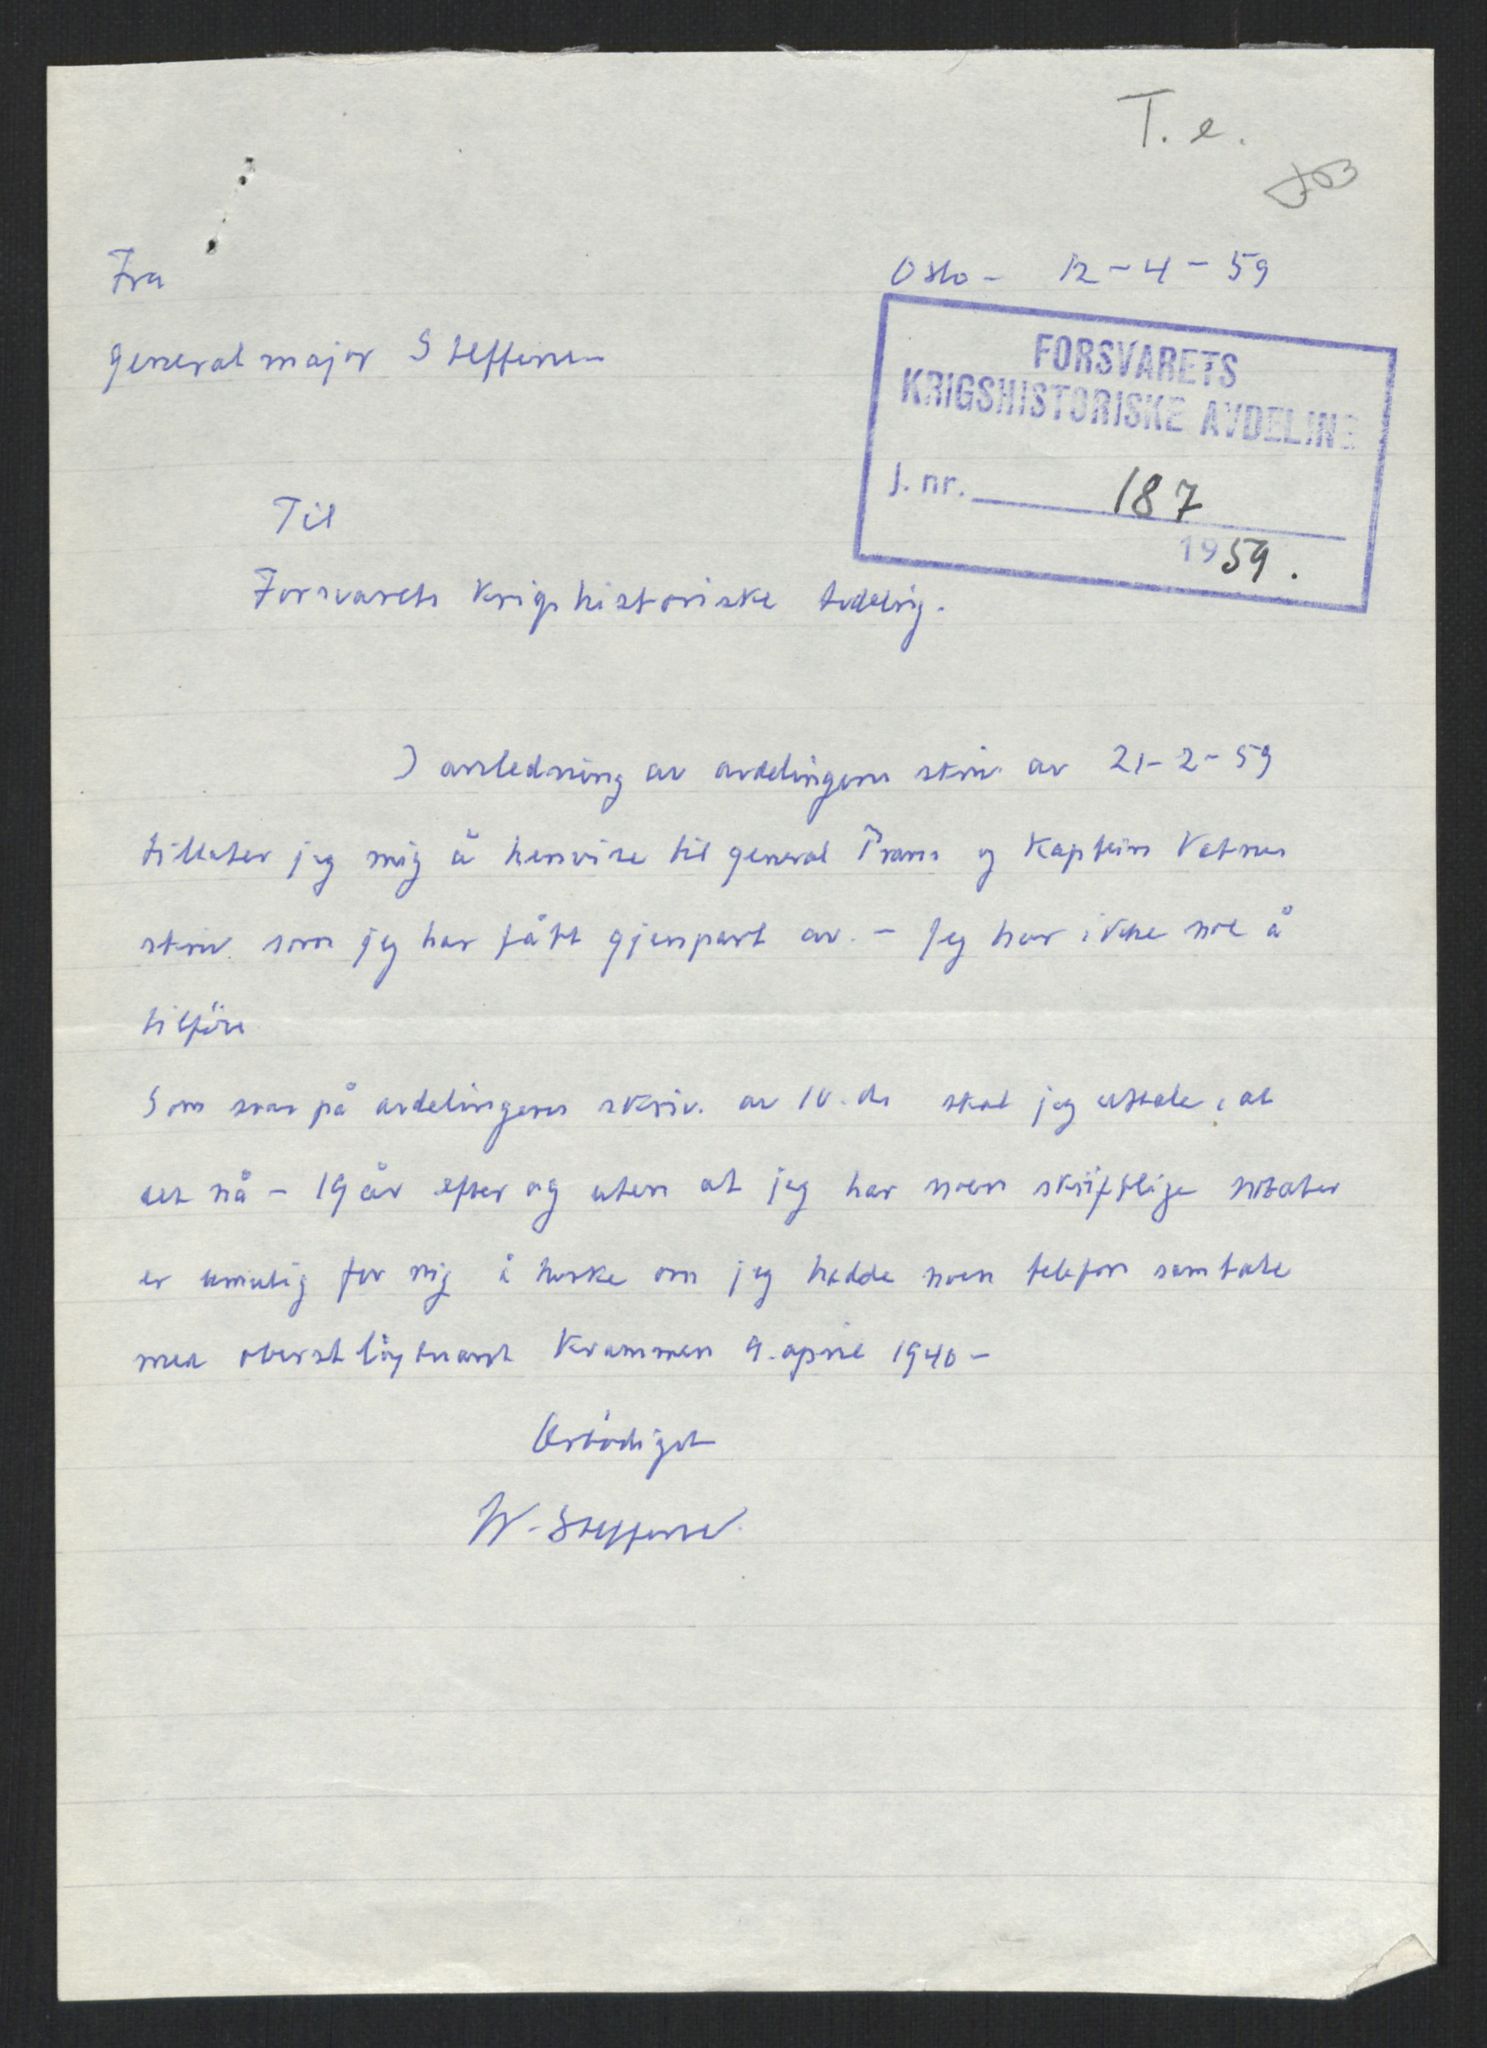 T. e.
Fra
Oslo - 12 - 4 - 59
generalmajor Steffens
FORSVARETS
KRIGSHISTORISKE AVDELING
J. nr. 187
1959.
Til
Forsvarets Krigshistoriske Avdeling.
I anledning av avdelingens skriv. av 21-2-59
tillater jeg mig å henvise til general Prans og Kaptein Vatnes
skriv. som jeg har fått gjenpart av. - Jeg har ikke noe å
tilföie
Som svar på avdelingens skriv. av 10. ds skal jeg uttale, at
det nå - 19 år efter og uten at jeg har noen skriftlige notater
er umulig for mig å huske om jeg hadde noen telefon samtale
med oberstlöytnant Brammen 9. april 1940 -
Ærbödigst
W. Steffens